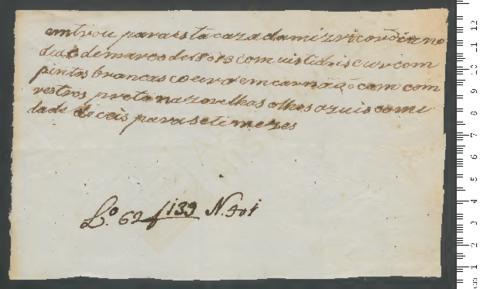 emtrou para esta caza da mizricordia no
dia 6 de março de 1818 com vistido iscur com
pintas brancas coeuro emcarnado com com
restros preta nazorelhas olhos azuis com i
dade de seis para seti mezes
L.º 62 f 133 N. 401